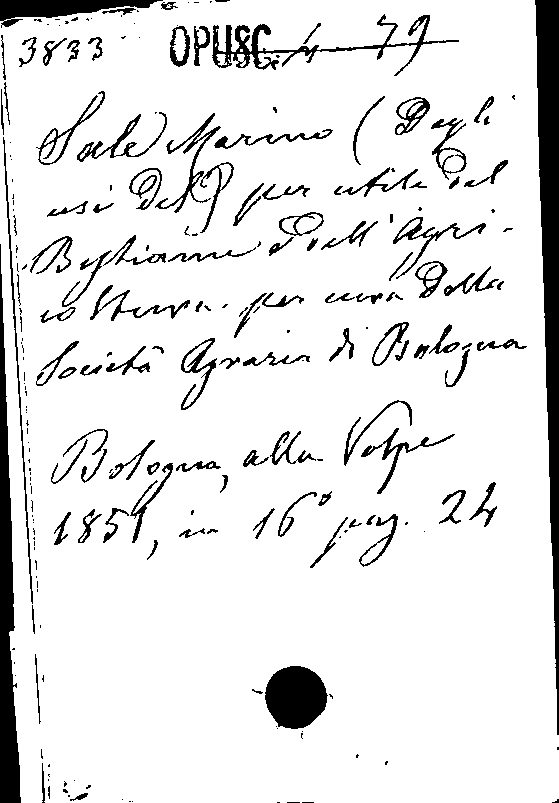 3833 OPUSC. 4 79
Sale Marino (Degli
usi del) per utile del
Bestiame e dell'Agri-
coltura. per cura della
Società Agraria di Bologna
Bologna, alla Volpe
1851, in 16° pag. 24